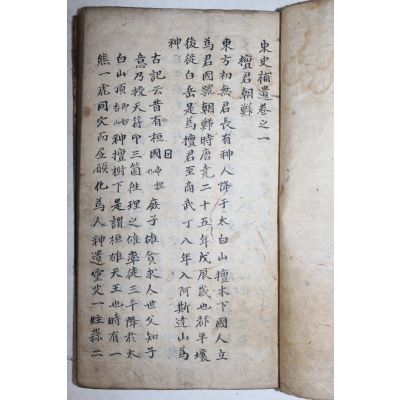 東史補遺卷之一
檀君朝鮮
東方初無君長有神人降于太白山檀木下國人立
為君國號朝鮮時唐堯二十五年戊辰歲也都平壤
後徙白岳是為檀君至商武丁八年入阿斯達山為
神
古記云昔有桓國帝釋庶子雄貪求人世父知子
意乃授天符印三箇徃理之雄率徒三千降於太
白山頂神檀樹下是謂桓雄天王也時有一
熊一虎同穴而居願化為人神遺靈艾一炷蒜二